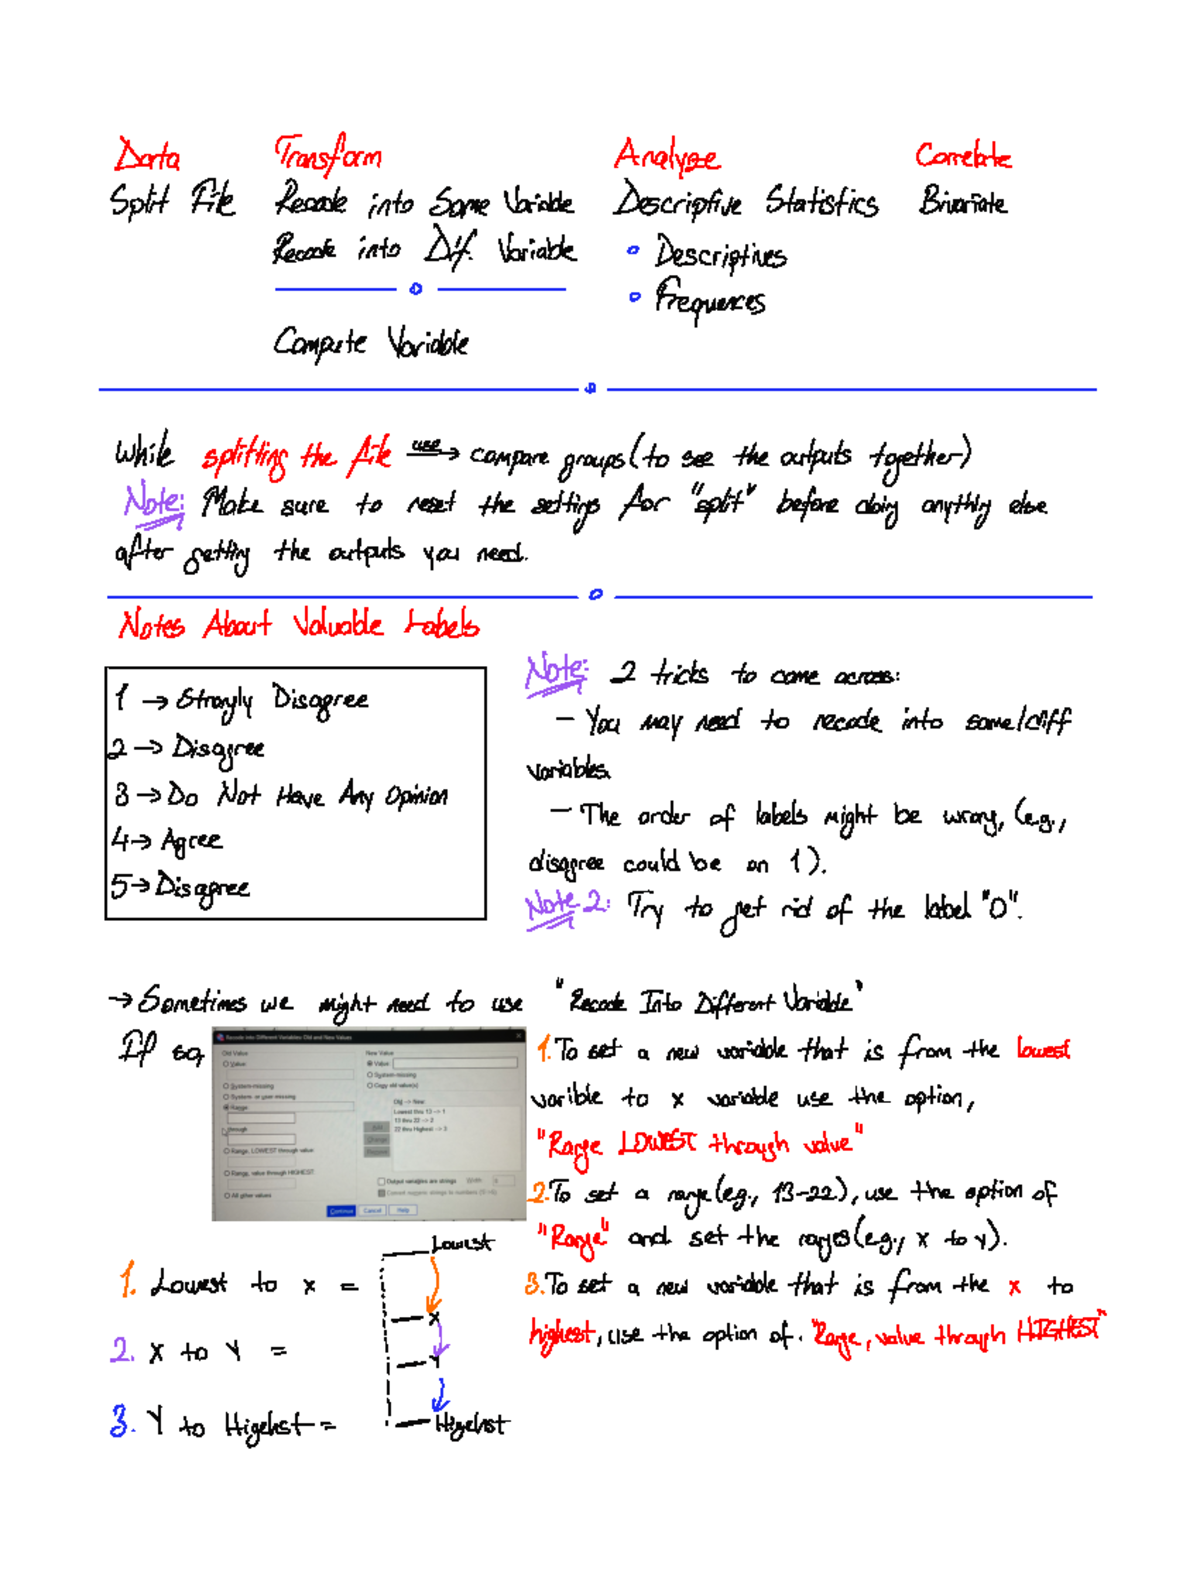 Data Transform Analyze Correlate
Split File Recode into Same Variable Descriptive Statistics Bivariate
Recode into Dif. Variable • Descriptives
• Frequences
Compute Variable
While splitting the file use→ compare groups (to see the outputs together)
Note: Make sure to reset the settings for "split" before doing anything else
after getting the outputs you need.
Notes About Valuable Labels
1 → Strongly Disagree
2 → Disagree
3 → Do Not Have Any Opinion
4 → Agree
5 → Disagree
Note: 2 tricks to come across:
— You may need to recode into same/diff
variables.
— The order of labels might be wrong, (e.g.,
disagree could be an 1).
Note 2: Try to get rid of the label "0".
→ Sometimes we might need to use "Recode Into Different Variable"
If so,
Recode into Different Variables: Old and New Values
Old Value
Value:
System-missing
System- or user-missing
Range:
through
Range, LOWEST through value:
Range, value through HIGHEST:
All other values
New Value
Value:
System-missing
Copy old value(s)
Old --> New:
Lowest thru 13 --> 1
13 thru 22 --> 2
22 thru Highest --> 3
Add
Change
Remove
Output variables are strings Width: 8
Convert numeric strings to numbers ('5'->5)
Continue Cancel Help
1. To set a new variable that is from the lowest
varible to x variable use the option,
"Range LOWEST through value"
2. To set a range (eg., 13-22), use the option of
"Range" and set the ranges (e.g., x to y).
3. To set a new variable that is from the x to
highest, use the option of. "Range, value through HIGHEST"
1. Lowest to x =
2. X to Y =
3. Y to Higehst =
Lowest
X
Y
Higehst